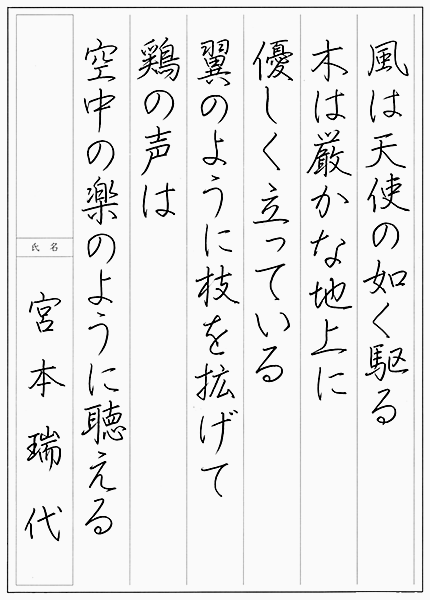 風は天使の如く駆る
木は厳かな地上に
優しく立っている
翼のように枝を拡げて
鶏の声は
空中の楽のように聴える
氏名
宮本瑞代